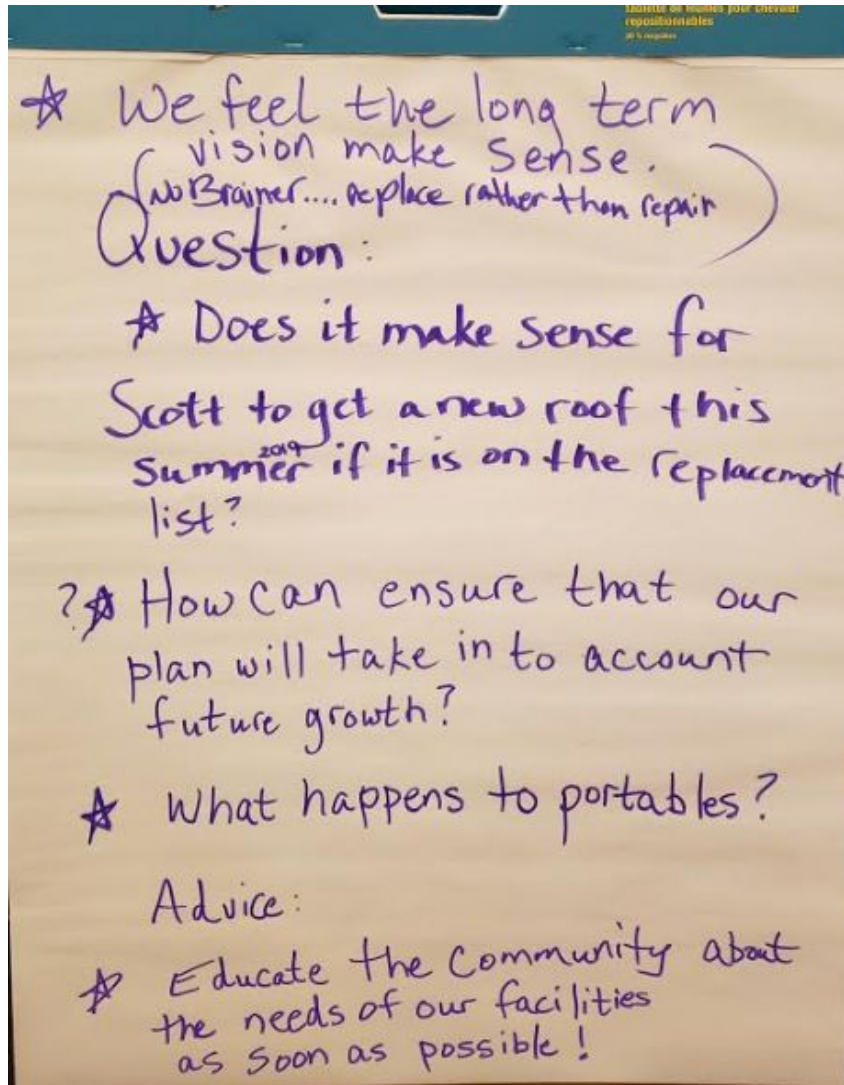 tablette de feuilles pour chevalet
repositionnables
☆ We feel the long term
vision make sense.
(No Brainer.... replace rather than repair)
Question:
☆ Does it make sense for
Scott to get a new roof this
2019
summer if it is on the replacement
list?
?☆ How can ensure that our
plan will take in to account
future growth?
☆ What happens to portables?
Advice:
☆ Educate the community about
the needs of our facilities
as soon as possible!